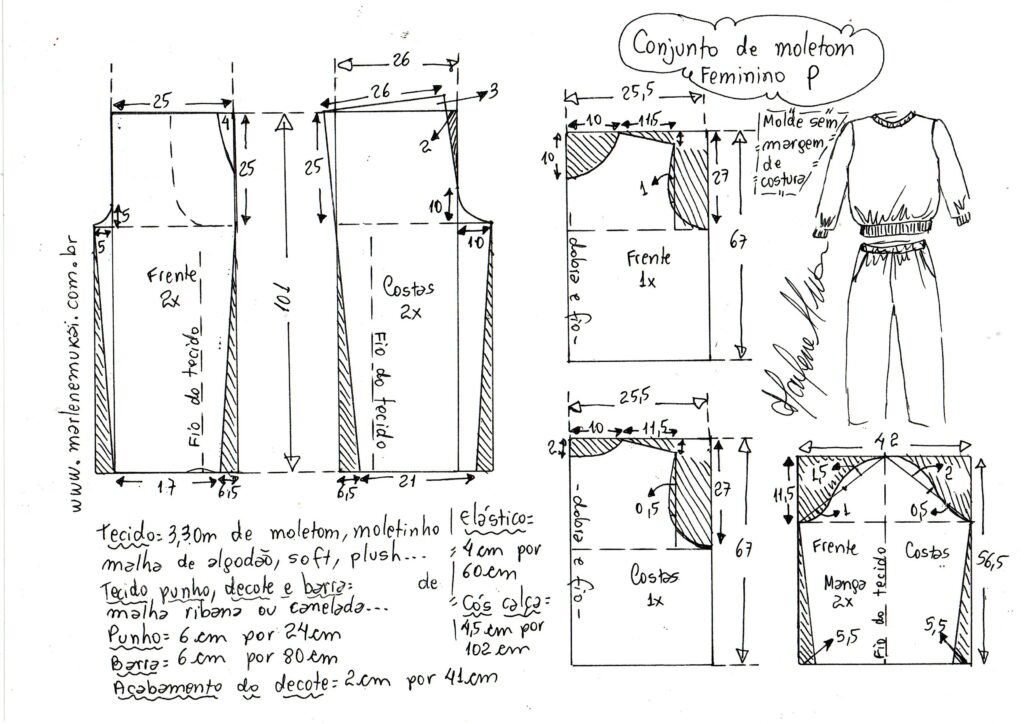 Conjunto de moletom
Feminino P
Molde sem
margem
de
costura
www.marlenemukai.com.br
25
4
25
5
5
Frente
2x
Fio do tecido
17
6,5
101
26
26
3
2
25
10
10
Costas
2x
Fio do tecido
6,5
21
25,5
10
11,5
10
1
27
67
- dobra e fio -
Frente
1x
25,5
10
11,5
2
0,5
27
67
- dobra e fio -
Costas
1x
42
11,5
1,5
2
1
0,5
Frente
Costas
Manga
2x
Fio do tecido
56,5
5,5
5,5
Tecido= 3,30m de moletom, moletinho
malha de algodão, soft, plush...
Tecido punho, decote e barra= de
malha ribana ou canelada...
Punho= 6 cm por 24cm
Barra= 6 cm por 80cm
Acabamento do decote= 2cm por 41cm
elástico=
= 4cm por
60cm
= Cós calça=
4,5cm por
102 cm